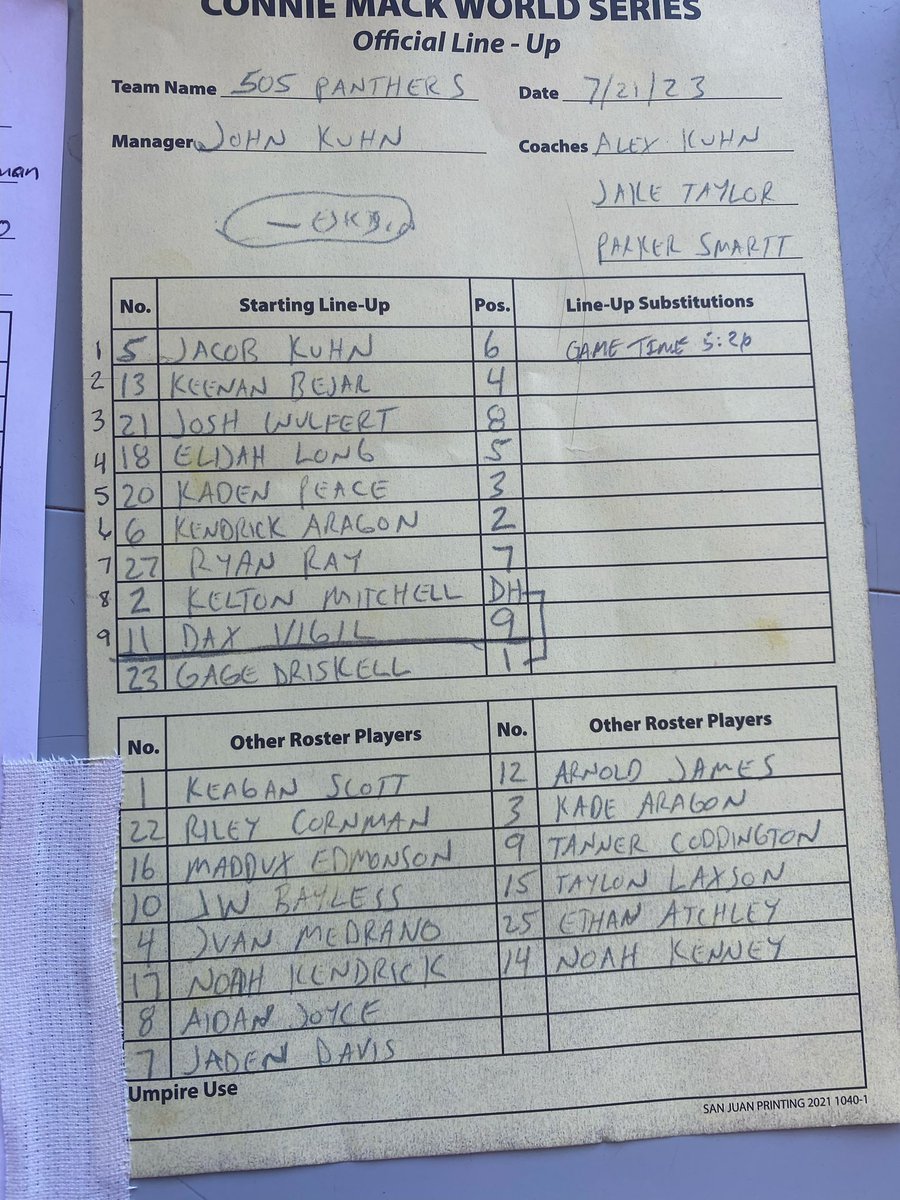 CONNIE MACK WORLD SERIES
Official Line - Up
Team Name 505 PANTHERS Date 7/21/23
Manager JOHN KUHN Coaches ALEX KUHN
JAKE TAYLOR
PARKER SMARTT
No. Starting Line-Up Pos. Line-Up Substitutions
1 5 JACOB KUHN 6 GAME TIME 5:26
2 13 KEENAN BEJAR 4
3 21 JOSH WULFERT 8
4 18 ELIJAH LONG 5
5 20 KADEN PEACE 3
6 6 KENDRICK ARAGON 2
7 27 RYAN RAY 7
8 2 KELTON MITCHELL DH
9 11 DAX VIGIL 9
23 GAGE DRISKELL 1
No. Other Roster Players No. Other Roster Players
1 KEAGAN SCOTT 12 ARNOLD JAMES
22 RILEY CORNMAN 3 KADE ARAGON
16 MADDUX EDMONSON 9 TANNER CODDINGTON
10 JW BAYLESS 15 TAYLON LAXSON
4 JUAN MEDRANO 25 ETHAN ATCHLEY
17 NOAH KENDRICK 14 NOAH KENNEY
8 AIDAN JOYCE
7 JADEN DAVIS
Umpire Use
SAN JUAN PRINTING 2021 1040-1